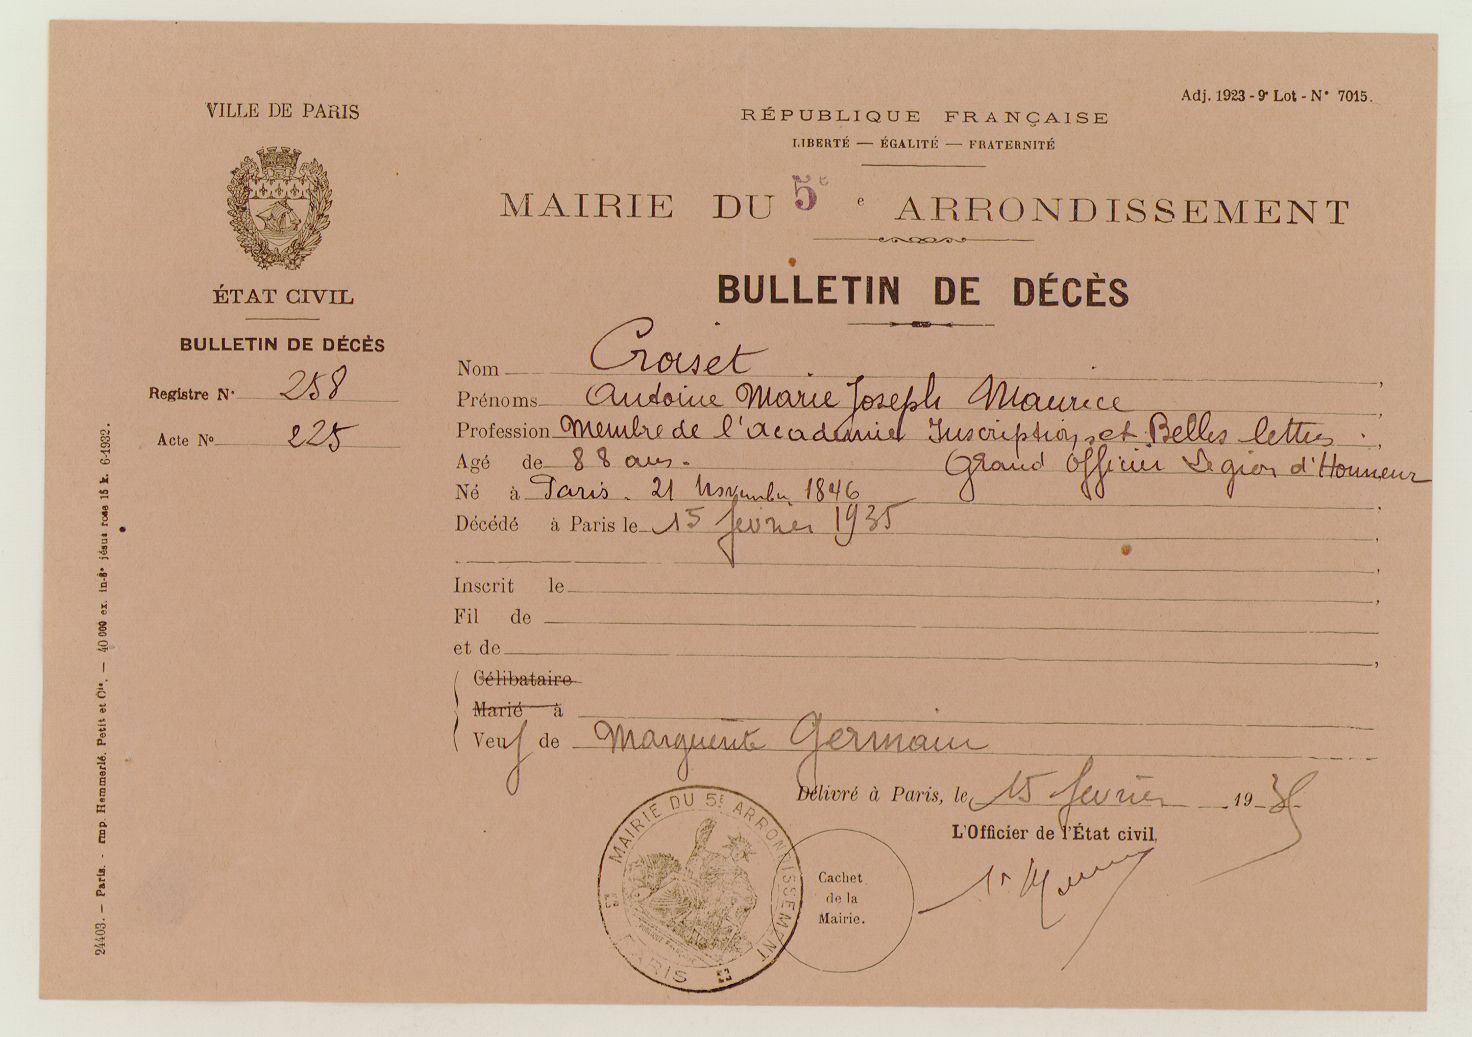 VILLE DE PARIS
ÉTAT CIVIL
BULLETIN DE DÉCÈS
Registre N° 258
Acte N° 225
24403. — Paris. - Imp. Hemmerlé, Petit et Cie. — 40 000 ex. in-8° jésus rose 15 k. 6-1932.
Adj. 1923 - 9e Lot - N° 7015.
RÉPUBLIQUE FRANÇAISE
LIBERTÉ — ÉGALITÉ — FRATERNITÉ
MAIRIE DU 5e e ARRONDISSEMENT
BULLETIN DE DÉCÈS
Nom Croiset,
Prénoms Antoine Marie Joseph Maurice,
Profession Membre de l'Academie Inscriptions et Belles lettres,
Agé de 88 ans. Grand Officier Legion d'Honneur
Né à Paris. 21 Novembre 1846,
Décédé à Paris le 15 fevrier 1935,
Inscrit le,
Fil de
et de,
Célibataire
Marié à
Veuf de Marguerite Germain
Délivré à Paris, le 15 fevrier 1935
L'Officier de l'État civil,
MAIRIE DU 5E ARRONDISSEMENT
PARIS
Cachet
de la
Mairie.